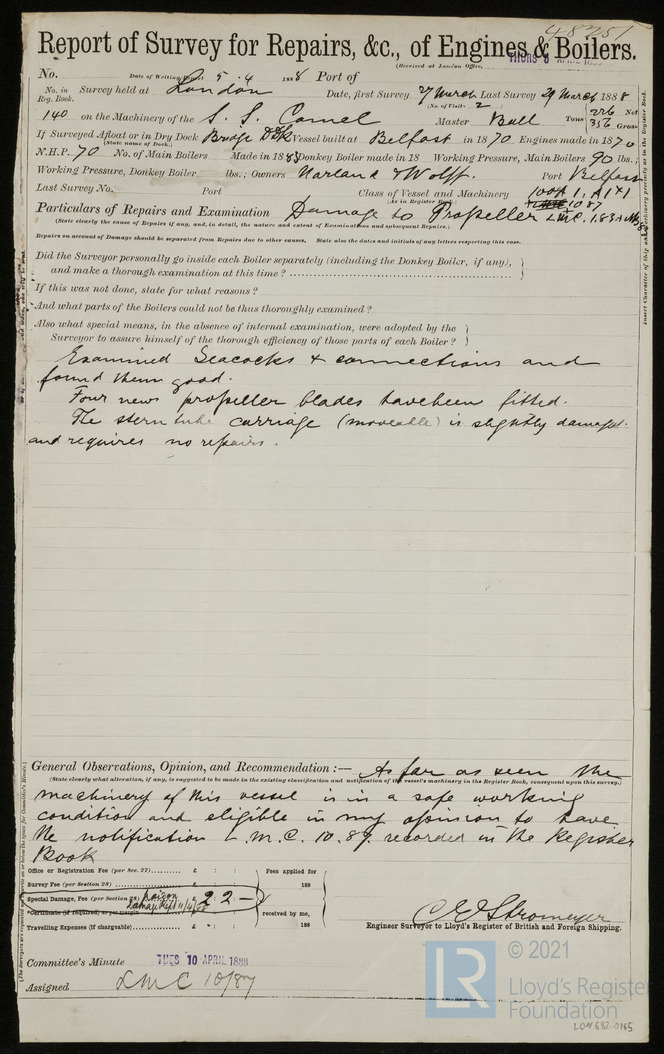 48251
Report of Survey for Repairs, &c., of Engines & Boilers.
THURS 5 APRIL 188
(Received at London Office,
No. Date of Writing Report 5.4 1888 Port of
No. in Reg. Book. Survey held at London Date, first Survey 27 March Last Survey 29 March 1888
(No. of Visits 2
140 on the Machinery of the S. S. Camel Master Ball Tons 276 Net 356 Gross
If Surveyed Afloat or in Dry Dock Bridge D Dk Vessel built at Belfast in 1870 Engines made in 1870
(State name of Dock.)
N.H.P. 70 No. of Main Boilers Made in 1883 Donkey Boiler made in 18 Working Pressure, Main Boilers 90 lbs.;
Working Pressure, Donkey Boiler lbs.; Owners Harland & Wolff. Port Belfast
Last Survey No. Port Class of Vessel and Machinery 100A1,
(As in Register Book.) 10 87
Particulars of Repairs and Examination Damage to Propeller
(State clearly the cause of Repairs if any, and, in detail, the nature and extent of Examinations and subsequent Repairs.)
Repairs on account of Damage should be separated from Repairs due to other causes. State also the dates and initials of any letters respecting this case.
Did the Surveyor personally go inside each Boiler separately (including the Donkey Boiler, if any),
and make a thorough examination at this time?
If this was not done, state for what reasons?
And what parts of the Boilers could not be thus thoroughly examined?
Also what special means, in the absence of internal examination, were adopted by the
Surveyor to assure himself of the thorough efficiency of those parts of each Boiler?
Examined Seacocks & connections and
found them good.
Four new propeller blades have been fitted.
The stern tube carriage (moveable) is slightly damaged
and requires no repairs.
General Observations, Opinion, and Recommendation:— As far as seen the
(State clearly what alteration, if any, is suggested to be made in the existing classification and notification of the vessel's machinery in the Register Book, consequent upon this survey.)
machinery of this vessel is in a safe working
condition and eligible in my opinion to have
the notification L.M.C. 10.87 recorded in the Register
Book
Office or Registration Fee (per Sec. 27) £ : : Fees applied for
Survey Fee (per Section 28) £ : : 188
Special Damage, Fee (per Section 28) £ 2 2 —
*Certificate (if required) as per margin received by me,
Travelling Expenses (if chargeable) £ : : 188
C E Stromeyer
Engineer Surveyor to Lloyd's Register of British and Foreign Shipping.
Committee's Minute TUES 10 APRIL 1888
Assigned LMC 10/87
Insert Character of Ship and Machinery precisely as in the Register Book.
© 2021
LR
Lloyd's Register
Foundation
LON682-0165